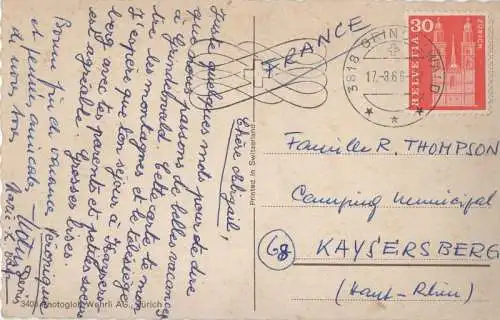 Chère Abigail,
Juste quelques mots pour te dire
que nous passons de belles vacances
à Grindelwald. Cette carte te montre
les montagnes et le télésiège.
J'espère que ton séjour à Kaysers-
berg avec tes parents et petites soeurs
est agréable. Grosses bises.
Véronique
Bonne fin de vacances
et pensées amicales
Denis
Printed in Switzerland
3408 Photoglob-Wehrli AG, Zürich
FRANCE
3818 GRINDELWALD
17.-8.6
ZÜRICH
30
HELVETIA
Famille R. THOMPSON
Camping Municipal
68 KAYSERSBERG
(Haut-Rhin)